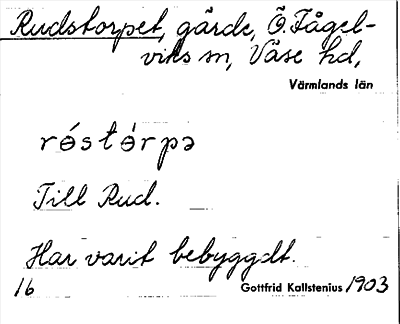 Rudstorpet, gärde, Ö. Fågel-
viks sn, Väse hd,
Värmlands län
róstórpə
Till Rud.
Har varit bebyggdt.
16 Gottfrid Kallstenius 1903